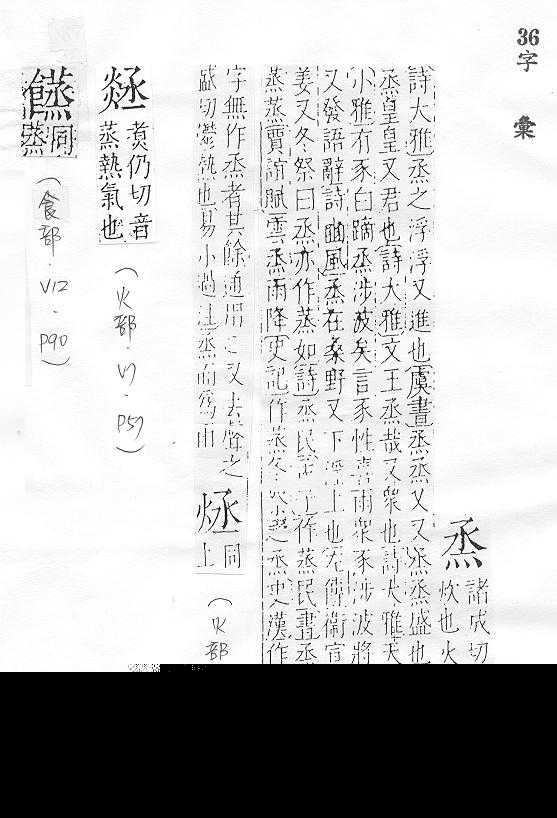 36
字彙
烝
諸成切
炊也火
詩大雅烝之浮浮又進也虞書烝烝乂又烝烝盛也
烝皇皇又君也詩大雅文王烝哉又衆也詩大雅天
小雅有豕白蹢烝涉波矣言豕性喜雨衆豕涉波將
又發語辭詩豳風烝在桑野又下淫上也左傳衞宣
姜又冬祭曰烝亦作蒸如詩烝民孟子作蒸民書烝
蒸蒸賈誼賦雲蒸雨降史記作蒸 烝史漢作
字無作烝者其餘通用 又去聲之
盛切鬱熱也易小過註蒸而爲雨
同
上
(火部
煑仍切音
蒸熱氣也
(火部.V7.P57)
同
蒸
(食部.V12.P90)